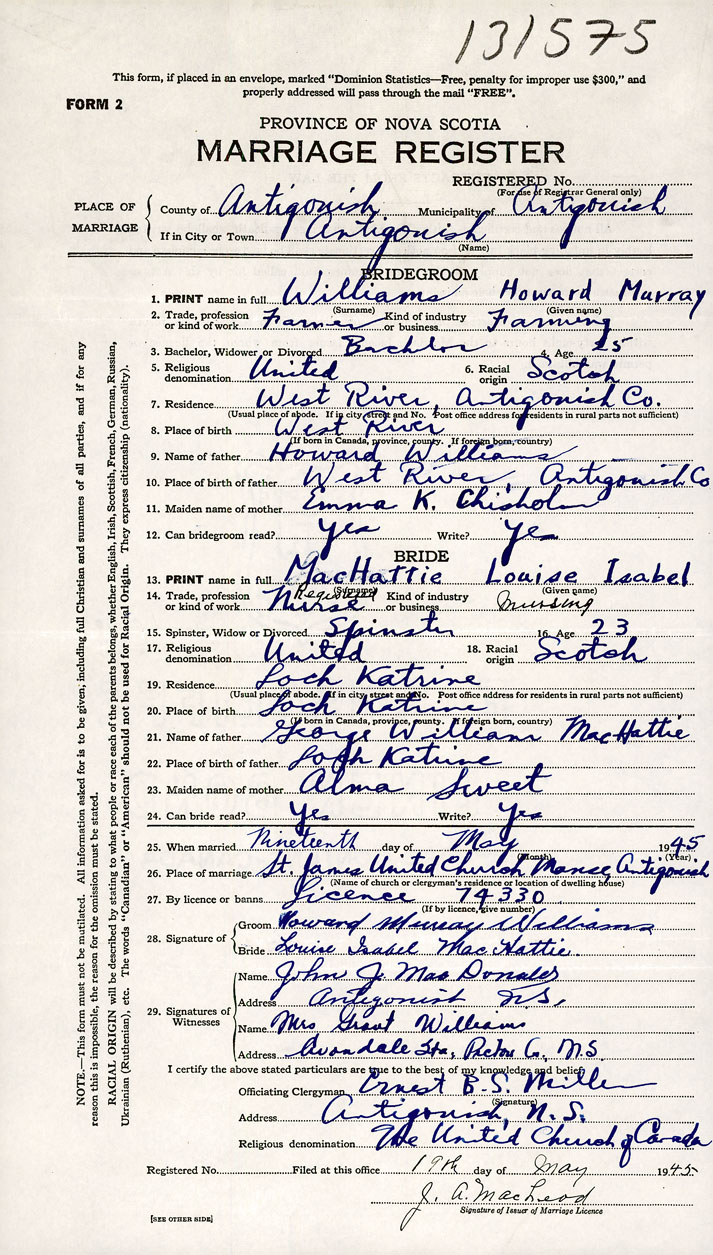 131575
This form, if placed in an envelope, marked "Dominion Statistics—Free, penalty for improper use $300," and
properly addressed will pass through the mail "FREE".
FORM 2
PROVINCE OF NOVA SCOTIA
MARRIAGE REGISTER
REGISTERED No.
(For use of Registrar General only)
PLACE OF MARRIAGE
County of Antigonish Municipality of Antigonish
If in City or Town Antigonish
(Name)
BRIDEGROOM
1. PRINT name in full Williams Howard Murray
(Surname) (Given name)
2. Trade, profession or kind of work Farmer Kind of industry or business Farming
3. Bachelor, Widower or Divorced Bachlor 4. Age 25
5. Religious denomination United 6. Racial origin Scotch
7. Residence West River, Antigonish Co.
(Usual place of abode. If in city, street and No. Post office address for residents in rural parts not sufficient)
8. Place of birth West River
(If born in Canada, province, county. If foreign born, country)
9. Name of father Howard Williams
10. Place of birth of father West River, Antigonish Co
11. Maiden name of mother Emma K. Chisholm
12. Can bridegroom read? Yes Write? Yes
BRIDE
13. PRINT name in full MacHattie Louise Isabel
(Surname) (Given name)
14. Trade, profession or kind of work Registered Nurse Kind of industry or business Nursing
15. Spinster, Widow or Divorced Spinster 16. Age 23
17. Religious denomination United 18. Racial origin Scotch
19. Residence Loch Katrine
(Usual place of abode. If in city, street and No. Post office address for residents in rural parts not sufficient)
20. Place of birth Loch Katrine
(If born in Canada, province, county. If foreign born, country)
21. Name of father George William MacHattie
22. Place of birth of father Loch Katrine
23. Maiden name of mother Alma Sweet
24. Can bride read? Yes Write? Yes
25. When married Nineteenth day of May 1945
(Month) (Year)
26. Place of marriage St. James United Church Manse, Antigonish
(Name of church or clergyman's residence or location of dwelling house)
27. By licence or banns Licence 74330
(If by licence, give number)
28. Signature of
Groom Howard Murray Williams
Bride Louise Isabel MacHattie
29. Signatures of Witnesses
Name John J. MacDonald
Address Antigonish N.S.
Name Mrs Grant Williams
Address Avondale Sta, Pictou Co, N.S.
I certify the above stated particulars are true to the best of my knowledge and belief
Officiating Clergyman Ernest B. S. Miller
(Signature)
Address Antigonish, N.S.
Religious denomination The United Church of Canada
Registered No. Filed at this office 19th day of May 1945
J. A. MacLeod
Signature of Issuer of Marriage Licence
[SEE OTHER SIDE]
NOTE.—This form must not be mutilated. All information asked for is to be given, including full Christian and surnames of all parties, and if for any
reason this is impossible, the reason for the omission must be stated.
RACIAL ORIGIN will be described by stating to what people or race each of the parents belongs, whether English, Irish, Scottish, French, German, Russian,
Ukrainian (Ruthenian), etc. The words "Canadian" or "American" should not be used for Racial Origin. They express citizenship (nationality).